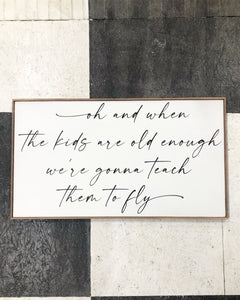 oh and when
the kids are old enough
we're gonna teach
them to fly